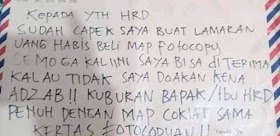 KEPADA YTH HRD
SUDAH CAPEK SAYA BUAT LAMARAN
UANG HABIS BELI MAP FOTOCOPY
SEMOGA KALI INI SAYA BISA DITERIMA
KALAU TIDAK SAYA DOAKAN KENA
ADZAB!! KUBURAN BAPAK/IBU HRD
PENUH DENGAN MAP COKLAT SAMA
KERTAS FOTOCOPYAN!